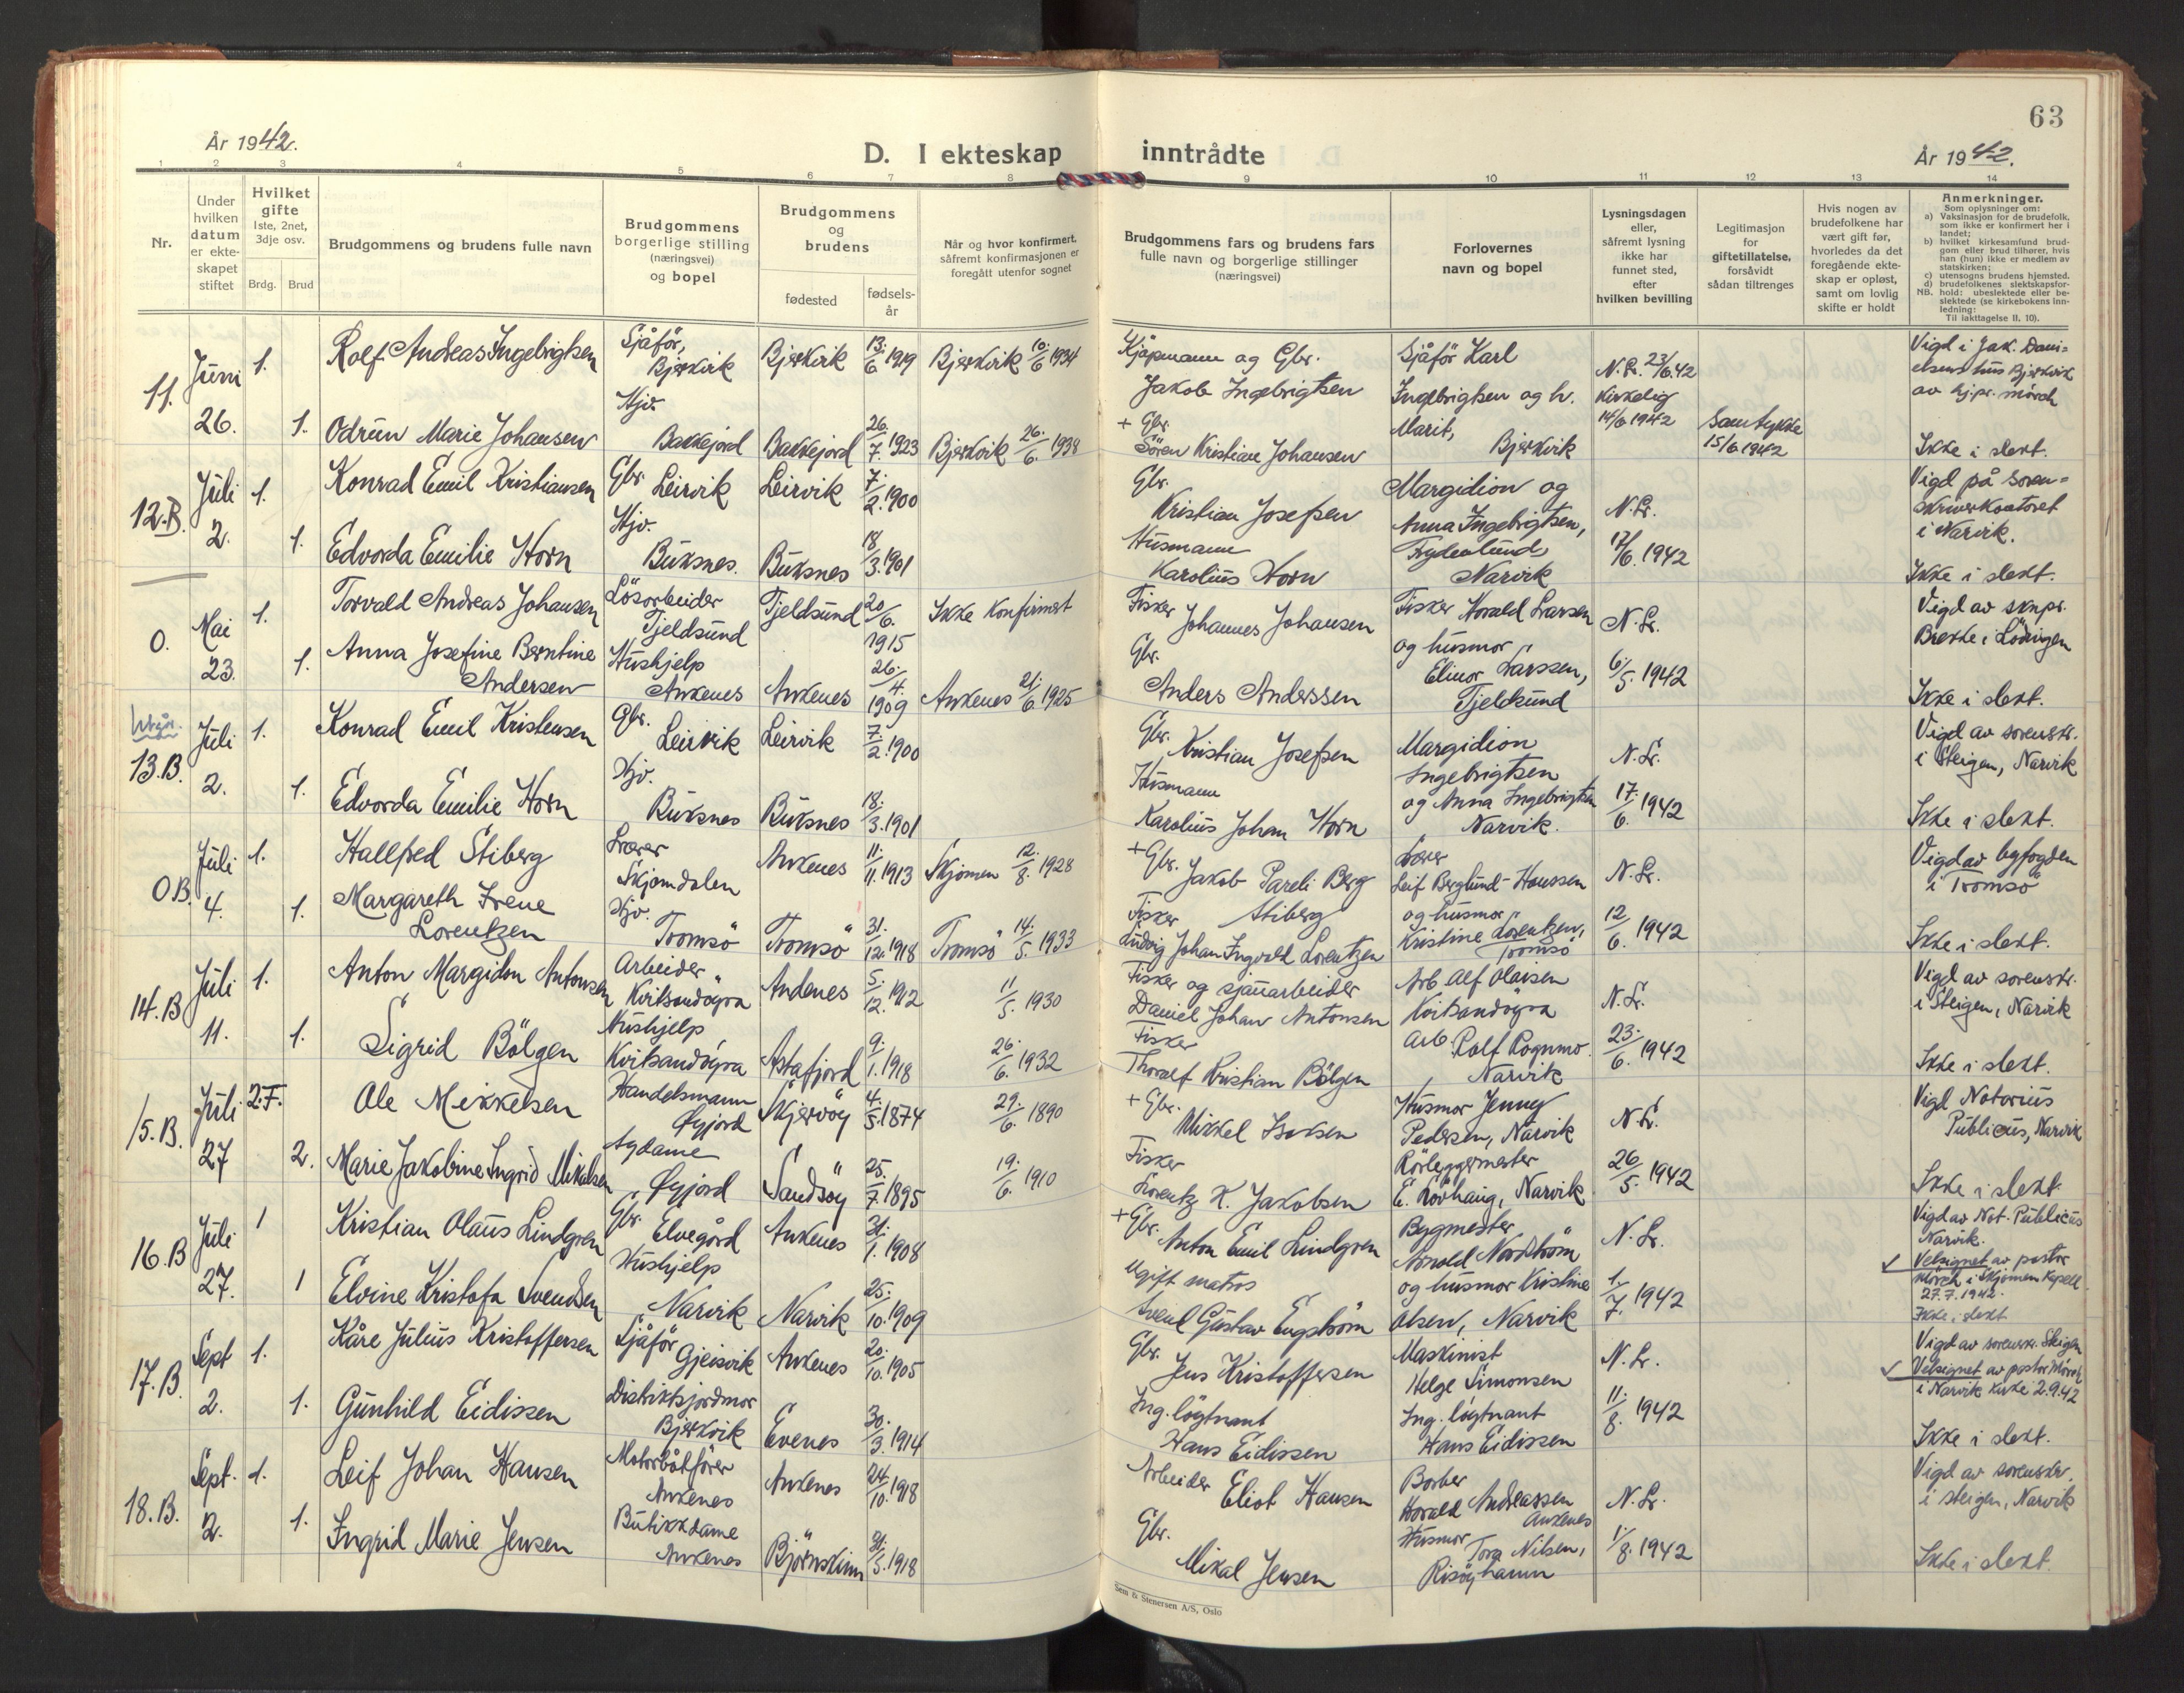 63
År 1942.
D. I ekteskap inntrådte
År 1942.
1 2 3 4 5 6 7 8 9 10 11 12 13 14
Nr.
Under hvilken datum er ekte-skapet stiftet
Hvilket gifte
Iste, 2net, 3dje osv.
Brdg. Brud
Brudgommens og brudens fulle navn
Brudgommens borgerlige stilling (næringsvei) og bopel
Brudgommens og brudens
fødested
fødsels-år
Når og hvor konfirmert, såfremt konfirmasjonen er foregått utenfor sognet
Brudgommens fars og brudens fars fulle navn og borgerlige stillinger (næringsvei)
Forlovernes navn og bopel
Lysningsdagen eller, såfremt lysning ikke har funnet sted, efter hvilken bevilling
Legitimasjon for giftetillatelse, forsåvidt sådan tiltrenges
Hvis nogen av brudefolkene har vært gift før, hvorledes da det foregående ekte-skap er opløst, samt om lovlig skifte er holdt
Anmerkninger.
Som oplysninger om:
a) Vaksinasjon for de brudefolk, som ikke er konfirmert her i landet;
b) hvilket kirkesamfund brud-gom eller brud tilhører, hvis han (hun) ikke er medlem av statskirken;
c) utensogns brudens hjemsted.
d) brudefolkenes slektskapsfor-hold: ubeslektede eller be-slektede (se kirkebokens inn-ledning:
NB. Til iakttagelse II. 10).
11. Juni 26.
1. Rolf Andreas Ingebrigtsen
Sjåfør, Bjerkvik
Bjerkvik 13/6 1919
Bjerkvik 10/6 1934
Kjøpmann og Gbr. Jakob Ingebrigtsen
Sjåför Karl Ingebrigtsen og h. Marit, Bjerkvik
N. Lr. 23/6 42
Kirkelig 14/6 1942
Samtykke 15/6 1942
Vigd i Jak. Dani=elsens hus Bjerkvik av hj.pr. Mörch
1. Odrun Marie Johansen
Hjv. Bakkejord
Bakkejord 26/7. 1923
Bjerkvik 26/6. 1938
+ Gbr. Sören Kristian Johansen
Ikke i slekt.
12.B. Juli 2.
1. Konrad Emil Kristiansen
Gbr. Leirvik
Leirvik 7/2. 1900
Gbr. Kristian Josefsen
Margidion og Anna Ingebrigtsen, Frydenlund, Narvik
N. Lr. 17/6. 1942
Vigd på soren=skriverkontoret i Narvik.
1. Edvorda Emilie Horn
Hjv. Buksnes.
Buksnes 18/3. 1901
Husmann Karolius Horn
Ikke i slekt.
0. Mai 23.
1. Torvald Andreas Johansen
Lösarbeider Tjeldsund
Tjeldsund 20/6. 1915
Ikke Konfirmert
Fisker Johannes Johansen
Fisker Harald Larsen og husmor Elinor Larssen, Tjeldsund
N. Lr. 6/5. 1942
Vigd av sknpr. Brekke i Lödingen
1. Anna Josefine Berntine Andersen
Hushjelp Ankenes
Ankenes 26/4. 1909
Ankenes 21/6. 1925
Gbr. Anders Anderssen
Ikke i slekt.
13.B. Juli 2.
1. Konrad Emil Kristensen
Gbr. Leirvik
Leirvik 7/2. 1900
Gbr. Kristian Josefsen
Margidion Ingebrigtsen og Anna Ingebrigtsen Narvik.
N. Lr. 17/6. 1942
Vigd av sorenskr. i Steigen, Narvik
1. Edvorda Emilie Horn
Hjv. Buksnes
Buksnes 18/3. 1901
Husmann Karolius Johan Horn
Ikke i slekt.
0B. Juli 4.
1. Hallfred Stiberg
Lærer Skjomdalen
Ankenes 11/11. 1913
Skjomen 12/8. 1928
+ Gbr. Jakob Pareli Berg Stiberg
Lærer Leif Berglund-Hanssen og husmor Kristine Lorentzen, Tromsö
N. Lr. 12/6. 1942
Vigd av byfogden i Tromsö
1. Margareth Irene Lorentzen
Hjv. Tromsö
Tromsö 31/12. 1918
Tromsö 14/5. 1933
Fisker Ludvig Johan Ingvald Lorentzen
Ikke i slekt.
14.B Juli 11.
1. Anton Margidon Antonsen
Arbeider Kvitsandöyra
Andenes 5/12. 1912
11/5. 1930
Fisker og sjauarbeider Daniel Johan Antonsen
Arb. Alf Olaisen Kvitsandöyra
Arb. Rolf Rognmo. Narvik
N. Lr. 23/6. 1942
Vigd av sorenskr. i Steigen, Narvik
1. Sigrid Bölgen
Hushjelp Kvitsandöyra
Astafjord 9/1. 1918
26/6. 1932
Fisker Thoralf Kristian Bölgen
Ikke i slekt.
15.B. Juli 27
2.F. Ole Mikkelsen
Handelsmann Øyjord
Skjervöy 4/5. 1874
29/6. 1890
+ Gbr. Mikkel Isaksen
Husmor Jenny Pedersen, Narvik
Rörleggermester E. Lövhaug, Narvik
N. Lr. 26/5. 1942
Vigd Notarius Publicus, Narvik
2. Marie Jakobine Ingrid Mikalsen
Sydame Øyjord
Sandsöy 25/7. 1895
19/6. 1910
Fisker Lorentz K. Jakobsen
Ikke i slekt
16.B Juli 27.
1 Kristian Olaus Lindgren
Gbr. Elvegård
Ankenes 31/1. 1908
+ Gbr. Anton Emil Lindgren
Bygmester Arnold Nordström og husmor Kristine Olsen, Narvik
N. Lr. 1/7. 1942
Vigd av Not. Publicus Narvik.
✓ Velsignet av pastor Mörch i Skjomen Kapell 27.7.1942.
1 Elvine Kristofa Svendsen
Hushjelp Narvik
Narvik 25/10. 1909
Ugift matros Svend Gustav Engström
Ikke i slekt
17.B. Sept 2.
1. Kåre Julius Kristoffersen
Sjåför Gjeisvik
Ankenes 20/10. 1905
Gbr. Jens Kristoffersen
Maskinist Helge Simonsen
Ing. löytnant Hans Eidissen
N. Lr. 11/8. 1942
Vigd av sorenskr. Steigen
✓ Velsignet av pastor Mörch i Narvik kirke 2.9.42
1. Gunhild Eidissen
Distriktsjordmor Bjerkvik
Evenes 30/3. 1914
Ing. löytnant Hans Eidissen
Ikke i slekt.
18.B. Sept. 2.
1. Leif Johan Hansen
Motorbåtförer Ankenes
Ankenes 24/10. 1918
Arbeider Eliot Hansen
Barber Harald Andreassen Ankenes
Husmor Tora Nilsen, Risöyhamn
N. Lr. 1/8. 1942
Vigd av sorenskr. i Steigen, Narvik
1. Ingrid Marie Jensen
Butikkdame Ankenes
Björnskinn 31/5. 1918
Gbr. Mikal Jensen
Ikke i slekt.
Sem & Stenersen A/S, Oslo